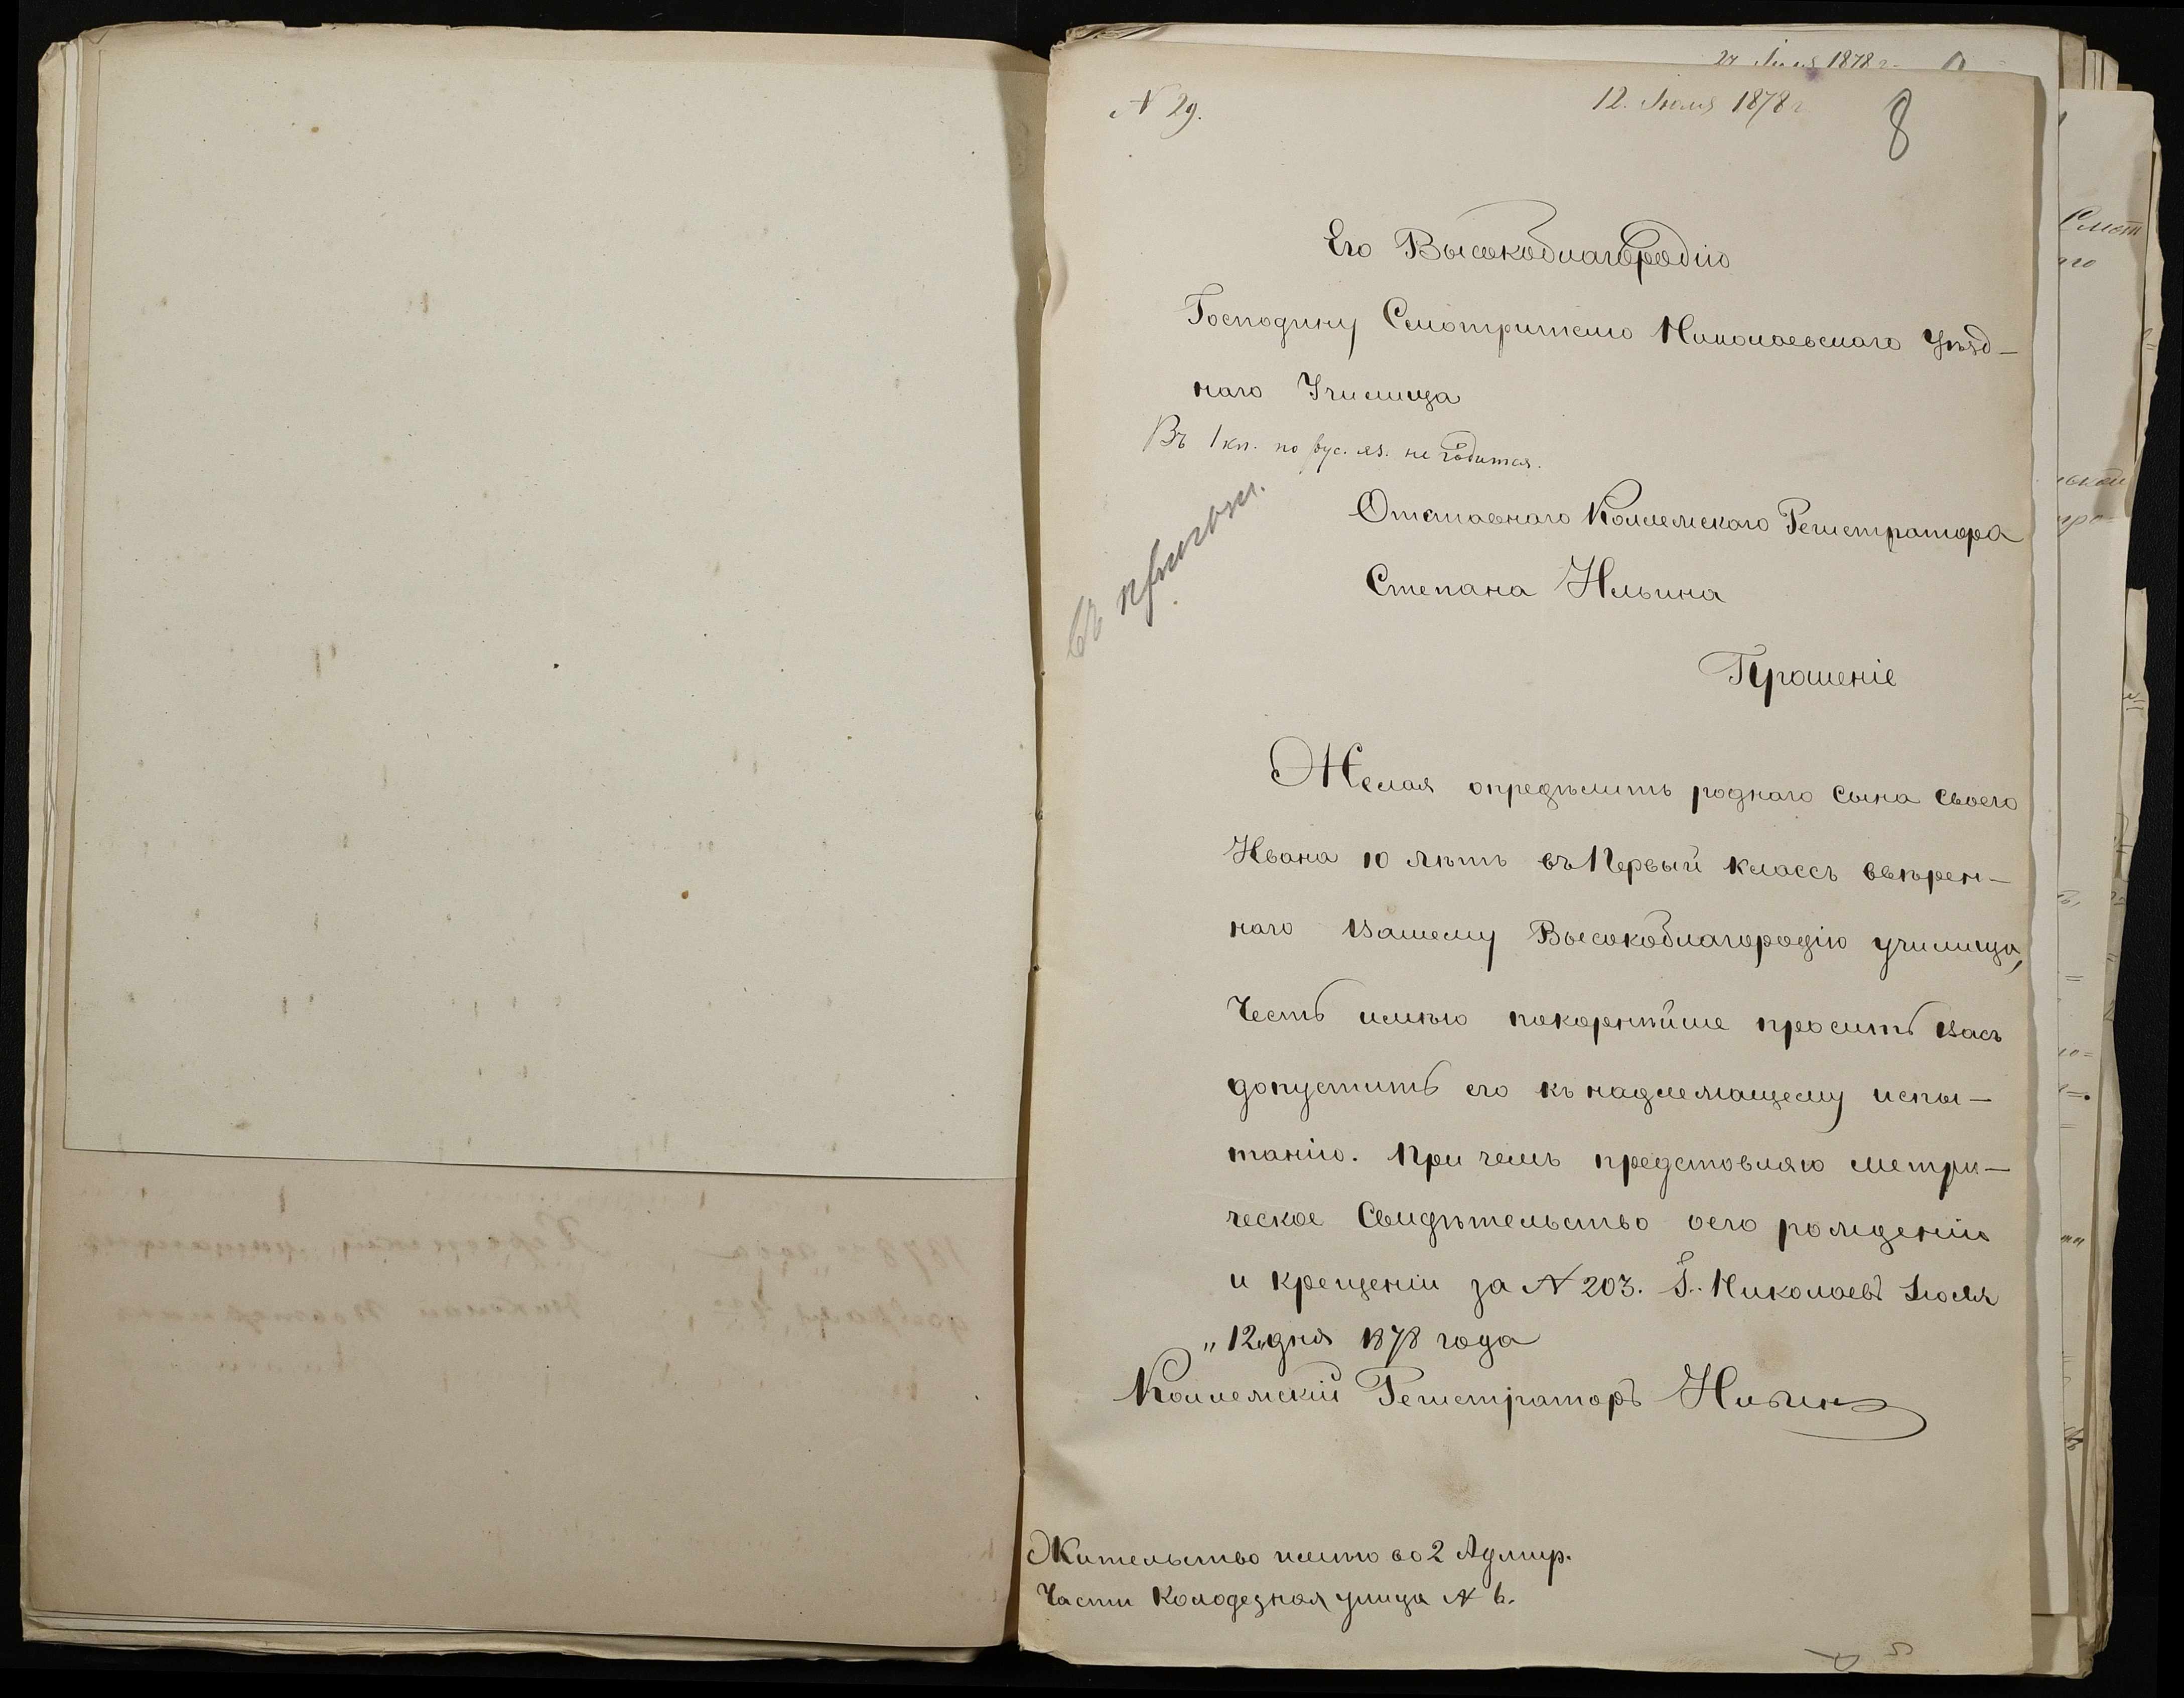 N 29.
12. Іюля 1878 г.
8
Его Высокоблагородію
Господину Смотрителю Николаевскаго Уѣзд-
наго Училища
Въ 1 кл. по рус. яз. не годится.
въ пригот.
Отставнаго Коллежскаго Регистратора
Степана Ильина
Прошеніе
Желая опредѣлить роднаго сына своего
Ивана 10 лѣтъ въ Первый классъ ввѣрен-
наго Вашему Высокоблагородію училища,
Честь имѣю покорнѣйше просить Васъ
допустить его къ надлежащему испы-
танію. При чемъ представляю метри-
ческое Свидѣтельство о его рожденіи
и крещеніи за N 203. Г. Николаевъ Іюля
„12„ дня 1878 года
Коллежскій Регистраторъ Ильинъ
Жительство имѣю во 2 Адмир.
Части Колодезная улица N 6.